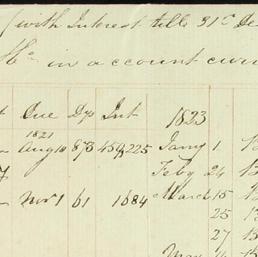 (with Interest till 31st De
in a account curr
Due Dys Int 1823
1821
Aug 10 873 459,225 Janry 1
Feby 24
Nov 1 61 1684 March 15
25
27
May